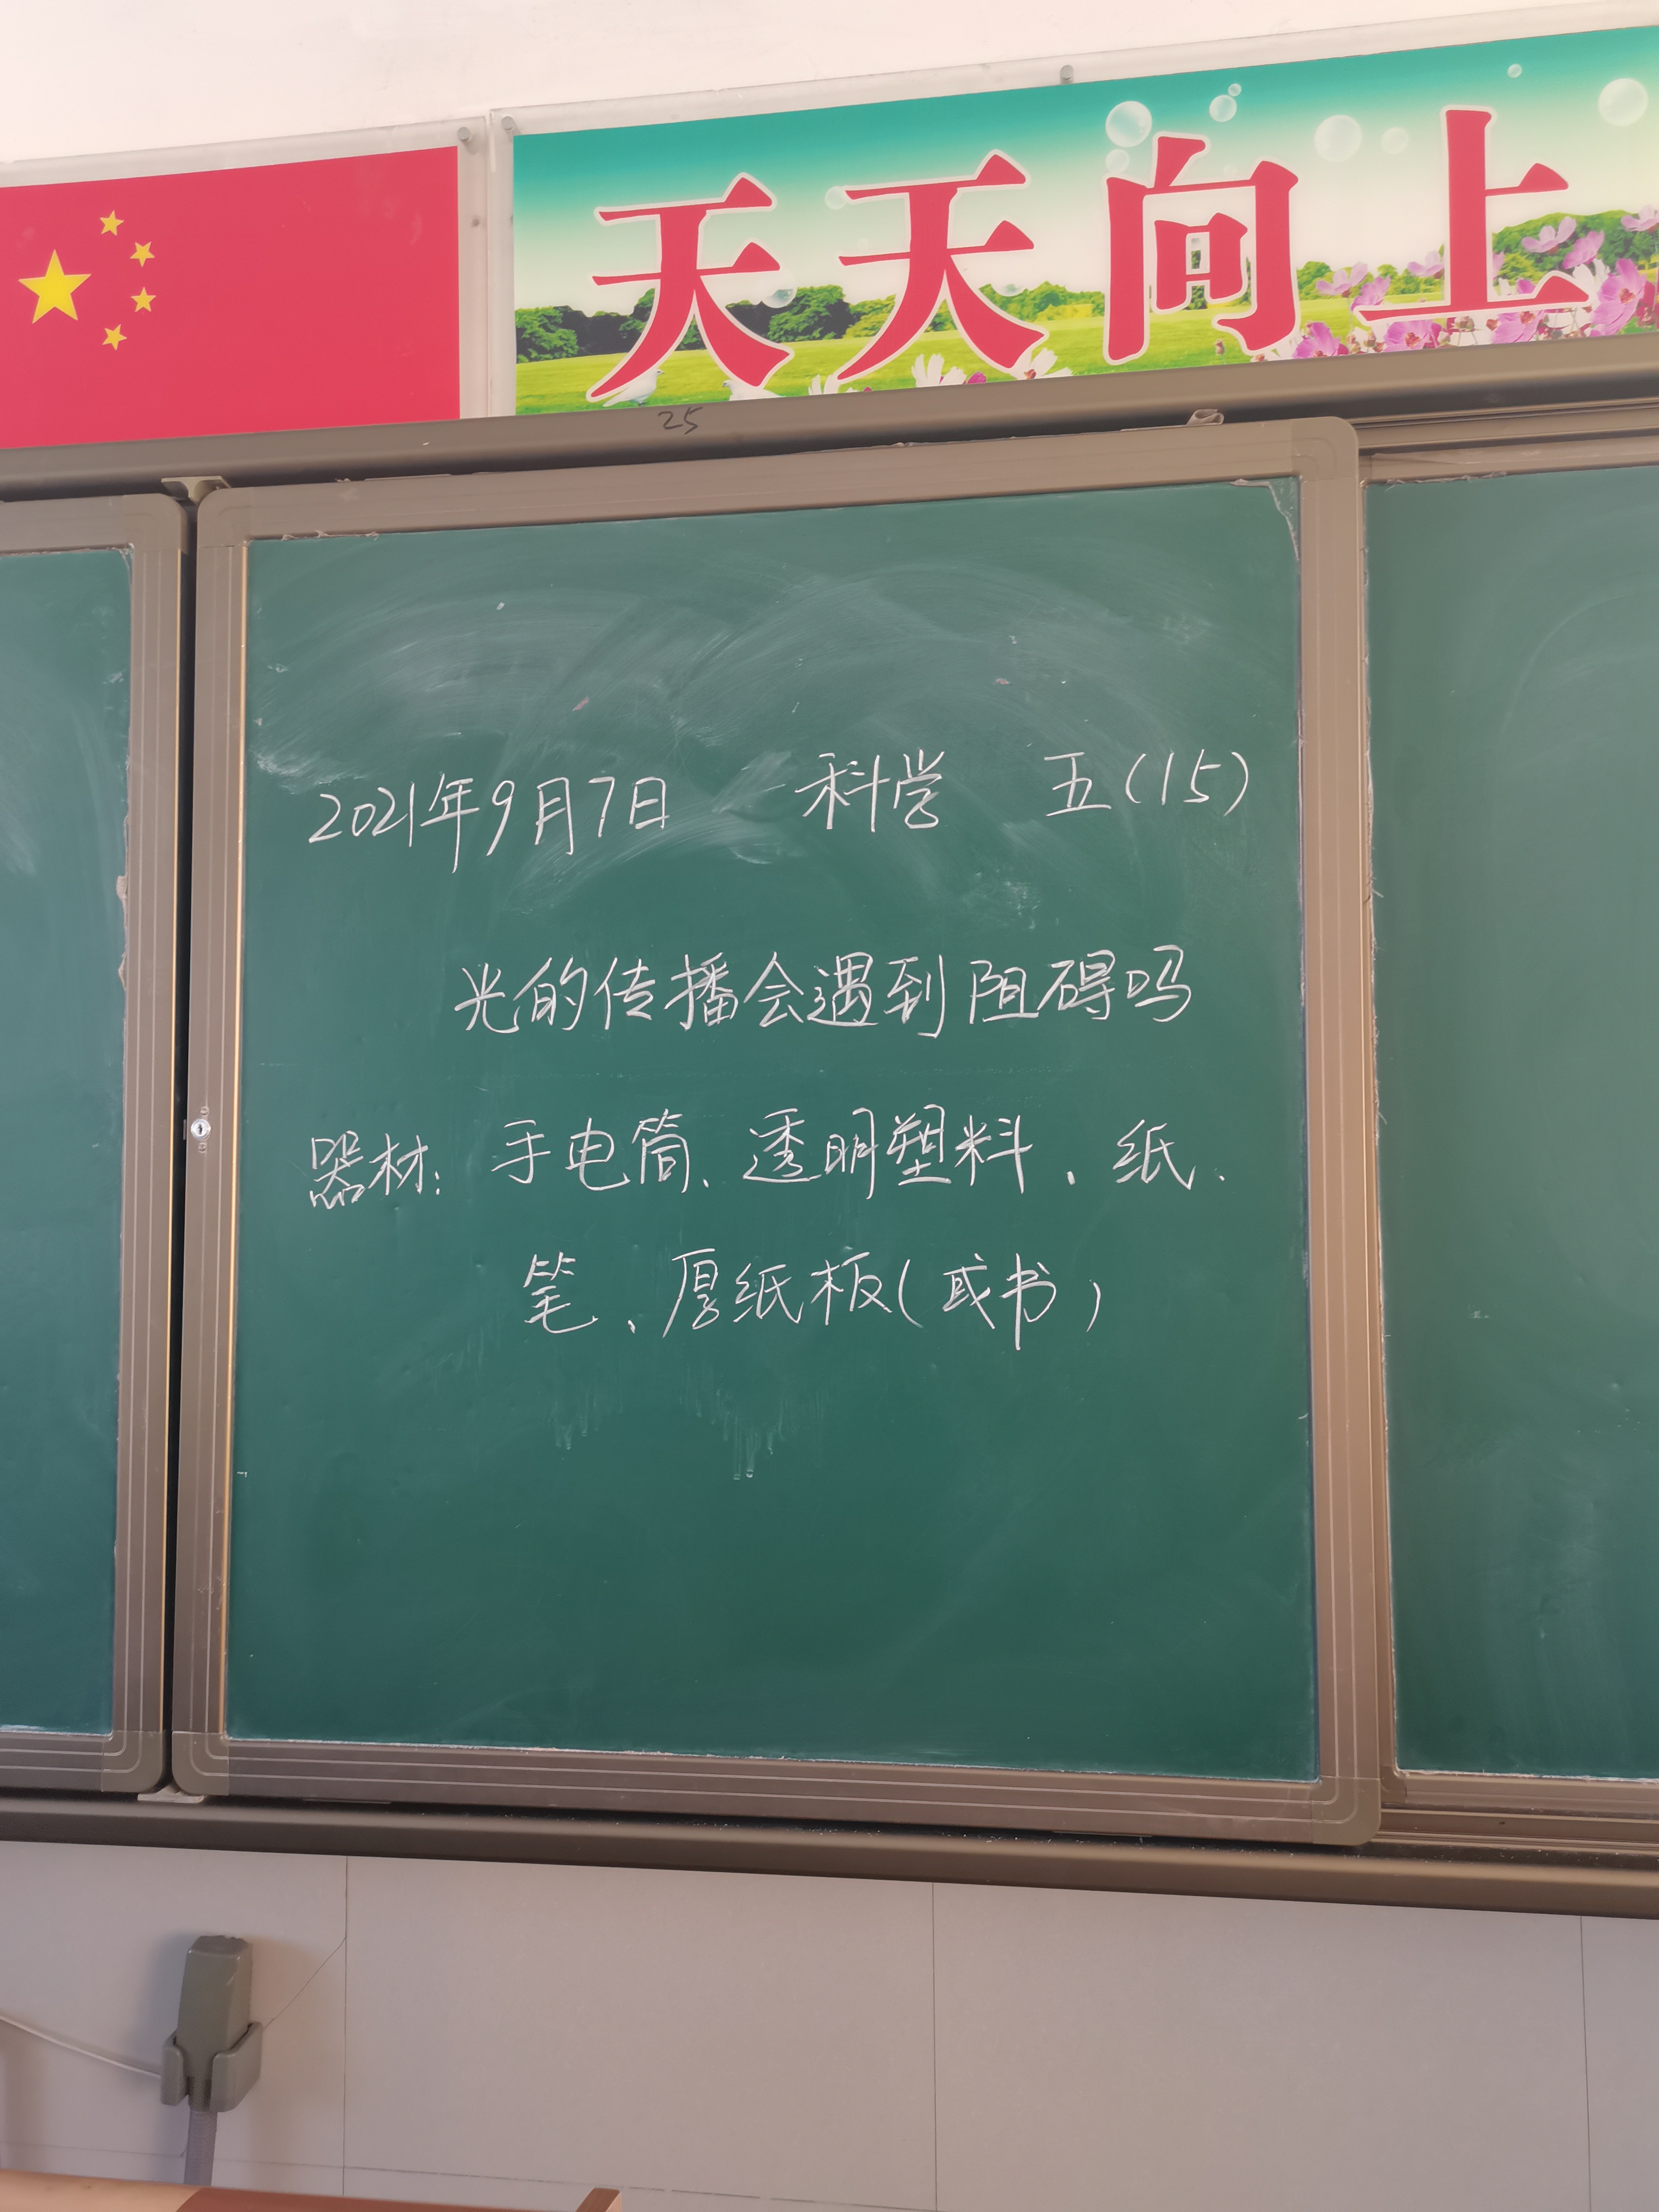 天天向上
25
2021年9月7日 科学 五(15)
光的传播会遇到阻碍吗
器材: 手电筒、透明塑料、纸、
笔、厚纸板(或书)